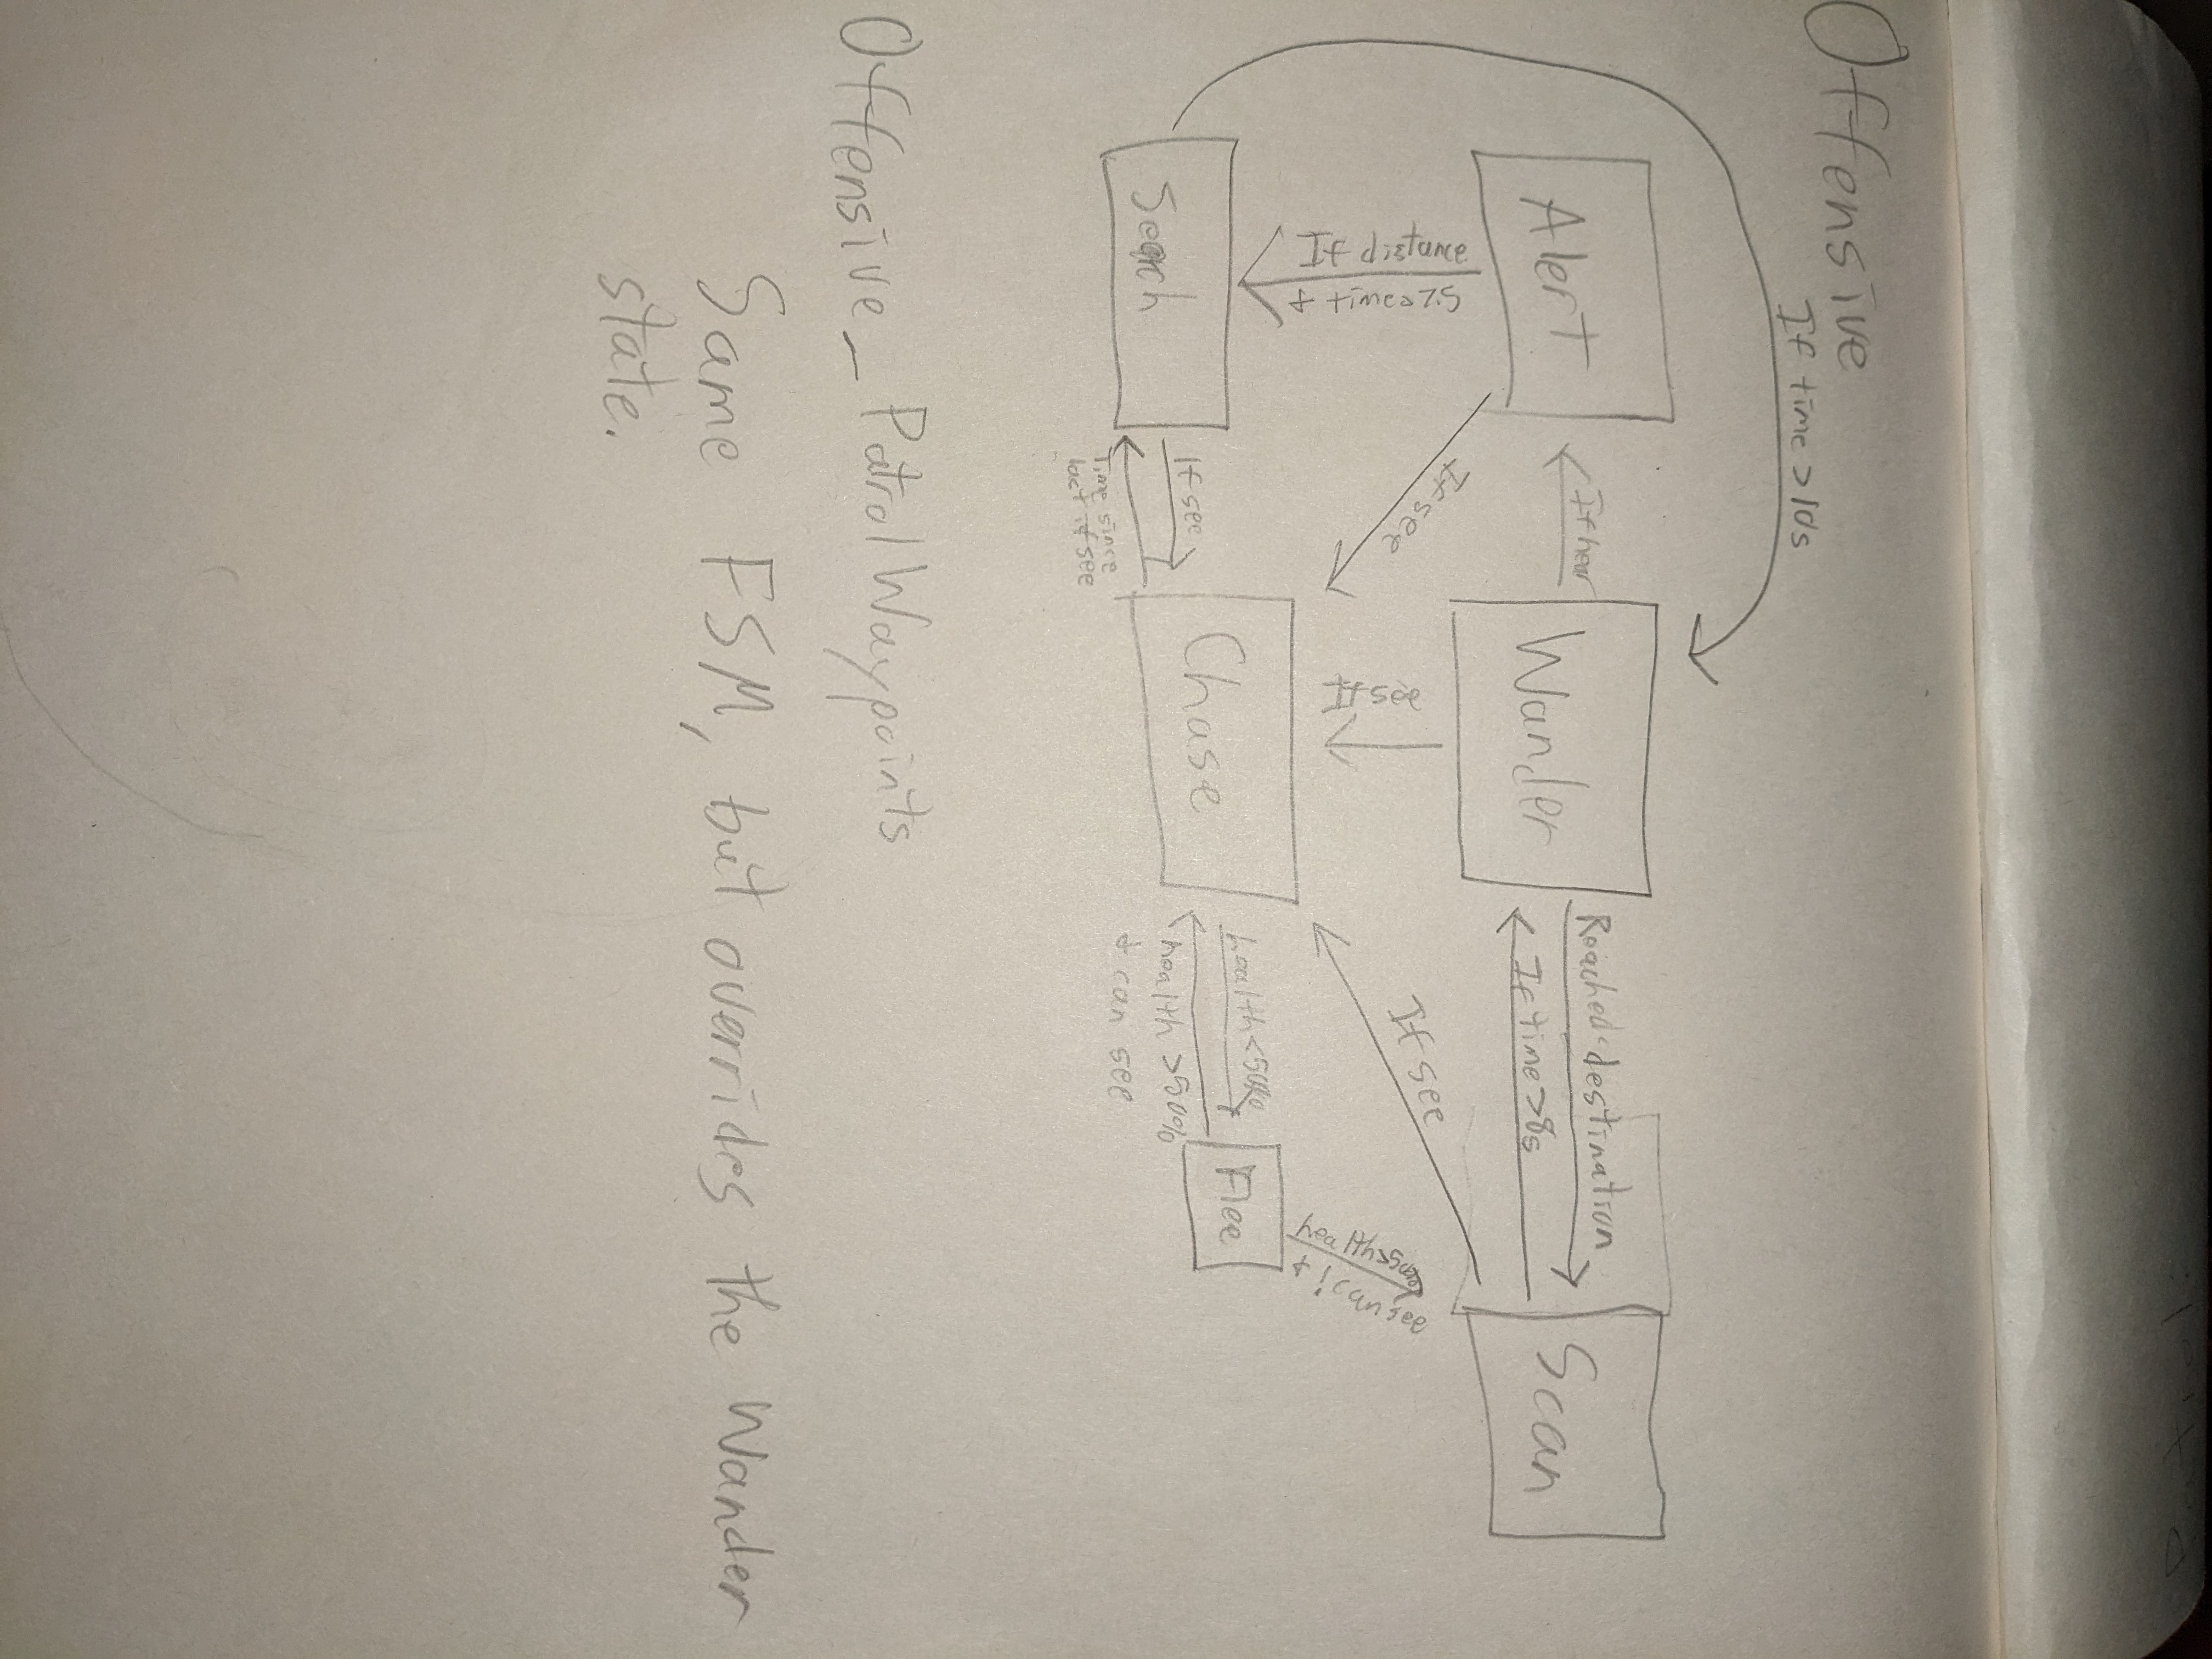 Offensive
If time >10s
Alert
If hear
Wander
Reached destination
If time >8s
Scan
If distance
& time>7.5
If see
If see
If see
health>50%
& !can see
Search
If see
Time since
last if see
Chase
health<50%
health >50%
& can see
Flee
Offensive_PatrolWaypoints
Same FSM, but overrides the Wander
state.